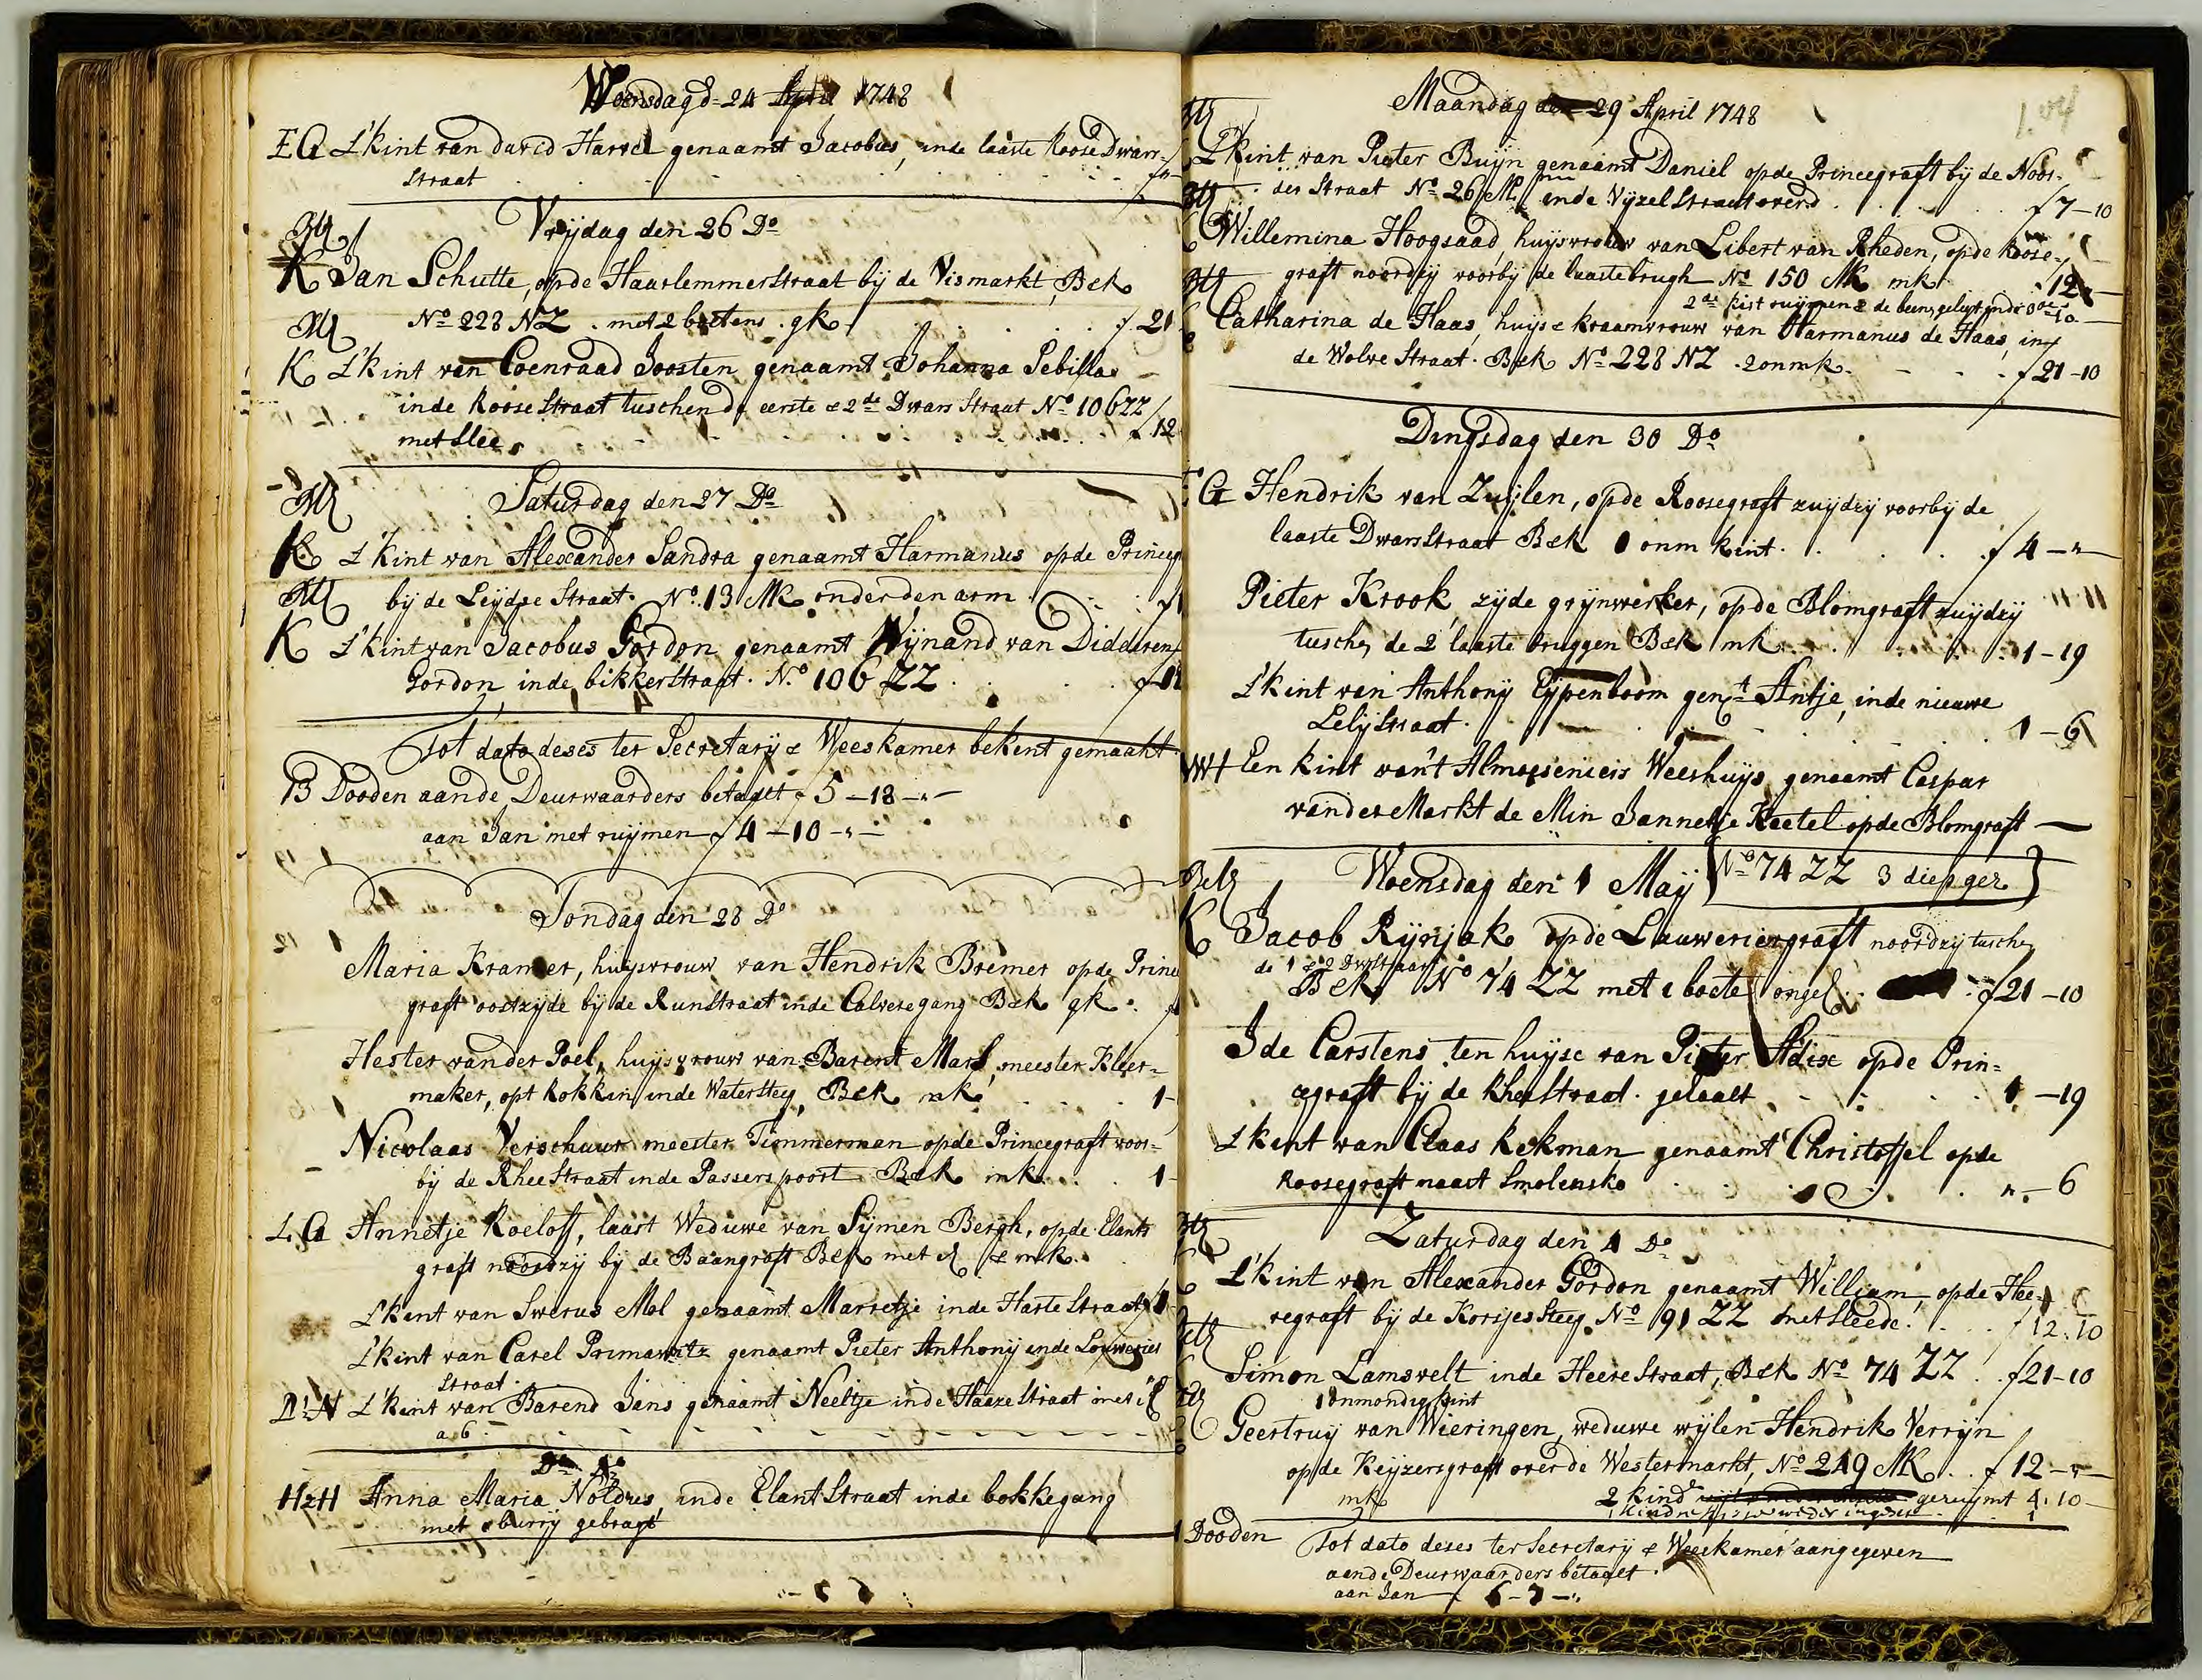 Woensdag d= 24 April 1748
EG 't kint van david Harrel genaamt Jacobus, inde laaste Roose Dwars-
Straat
Vrijdag den 26 Do
K Jan Schutte, op de Haarlemmerstraat bij de Vismarkt, Bek
No 228 NZ . met 2 boetens . gk . f 21
K 't kint van Coenraad Joosten genaamt Johanna Sebilla
inde Roose Straat tuschen de eerste & 2de Dwars Straat No 106 ZZ
met Slee f 12
Saturdag den 27 Do
K 't kint van Alexander Sandra genaamt Harmanus op de Princeg
bij de Leijdse Straat. No 13 MK onder den arm
K 't kint van Jacobus Gordon genaamt Wijnand van Didderen
Gordon inde bikkerstraat. No 106 ZZ
Tot dato deses ter Secretarij & Weeskamer bekent gemaakt
13 Dooden aande Deurwaarders betaalt f 5-18-"-
aan Jan met ruijmen f 4-10-"-
Sondag den 28 Do
Maria Kramer, huijsvrouw van Hendrik Bremer op de Prince
graft oostzyde bij de Runstraat inde Calveregang Bek gk .
Hester vander Poel, huijsvrouw van Barent Mars, meester Kleer-
maker, opt Rokkin inde Watersteeg, Bek mk 1-
Nicolaas Verschuur meester Timmerman op de Princegraft voor-
bij de Rhee Straat inde Passerspoort Bek mk. 1-
L.G Annetje Roeloff, laast Weduwe van Sijmen Bergh, op de Elants
graft noordzij bij de Baangraft Bek met & mk.
't kent van Swerus Mol genaamt Marretje inde Harte Straat
't kint van Carel Primawitz genaamt Pieter Anthonij inde Louwerier
Straat
't kent van Barend Jans genaamt Neeltje inde Haaze Straat met
a 6
Do Do
HzH Anna Maria Noldres, inde Elant Straat inde bokkegang
met burrij gebragt
Maandag den 29 April 1748
't kint van Pieter Buijn genaamt Daniel op de Princegraft bij de Noor-
der Straat No 26 MK inde Vijzel Straat overd f 7-10
Willemina Hoogsaad, huijsvrouw van Libert van Rheden, op de Roose-
graft noordzij voorbij de laaste brugh No 150 MK mk 12
2de kist ruijmen & de beens gelegt
Catharina de Haas, huijs & kraamvrouw van Harmanus de Haas, in
de Wolve Straat. Bek No 228 NZ . 2 onmk. f 21-10
Dingsdag den 30 Do
G Hendrik van Zuijlen, op de Roosegraft zuijdzij voorbij de
laaste Dwarsstraat Bek 1 onm kint. f 4-"-
Pieter Krook zijde grijnwerker, op de Blomgraft zuijdzij
tusche de 2 laaste bruggen Bek mk 1-19
't kint van Anthonij Eijpenboom gent Antje, inde nieuwe
Lelij Straat. 1-6
Een kint van't Almoeseniers Weeshuijs genaamt Caspar
vander Markt de Min Jannetje Keetel op de Blomgraft
Woensdag den 1 Maij No 74 ZZ 3 diep gez
K Jacob Rijnjak op de Lauweriergraft noordzij tusche
de 1 & 2 Dwrstraat
Bek No 74 ZZ met 1 boete ongel. f 21-10
Ide Carstens ten huijse van Pieter Adix op de Prin=
cegraft bij de Rhee Straat. gehaalt 1-19
't kent van Claas Kekman genaamt Christoffel op de
Roosegraft naast Smolensko ".-6
Zaturdag den 4 Do
't kint van Alexander Gordon genaamt William, op de Hee-
regraft bij de Korsjes Steeg No 91 ZZ met Sleede. f 12.10
Simon Lamsvelt inde Heere Straat, Bek No 74 ZZ . f 21-10
1 onmondig kint
Geertruij van Wieringen, weduwe wijlen Hendrik Verrijn
op de Keijzersgraft over de Westermarkt, No 249 MK . f 12-"-
mk 2 kind geruijmt 4.10-
Dooden Tot dato deses ter Secretarij & Weeskamer aangegeven
aende Deurwaarders betaalt.
aan Jan f 6-7-"